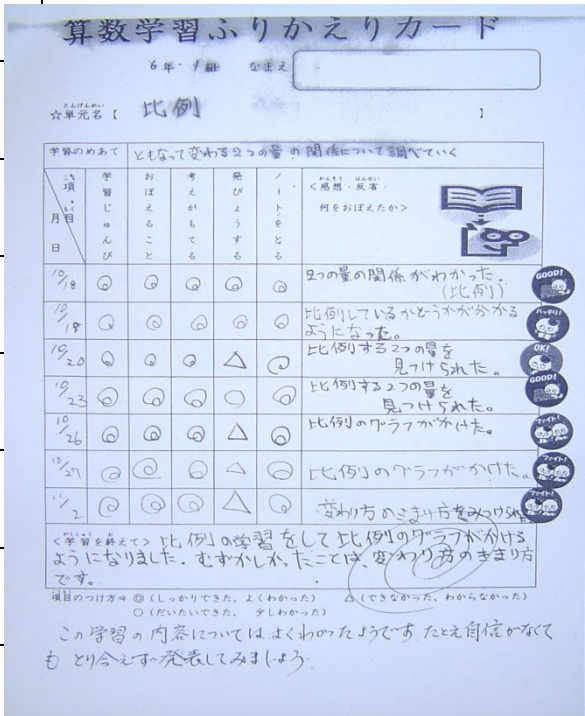 算数学習ふりかえりカード
6年 1組 なまえ
たんげんめい
☆単元名【 比例 】
学習のめあて ともなって変わる2つの量の関係について調べていく
こう 項
もく 目
月 日
学習じゅんび
おぼえること
考えがもてる
発ぴょうする
ノートをとる
かんそう はんせい
<感想・反省・
何をおぼえたか>
10/18 ◎ ◎ ◎ ◎ ◎ 2つの量の関係がわかった。
(比例)
GOOD!
10/19 ◎ ◎ ◎ ◎ ◎ 比例しているかどうかが分かる
ようになった。
バッチリ!
10/20 ◎ ◎ ◎ △ ◎ 比例する2つの量を
見つけられた。
OK!
10/23 ◎ ◎ ◎ ○ ◎ 比例する2つの量を
見つけられた。
GOOD!
10/26 ◎ ◎ ◎ △ ◎ 比例のグラフがかけた。
ファイト!
10/27 ◎ ◎ ◎ △ ◎ 比例のグラフがかけた。
ファイト!
11/2 ◎ ◎ ◎ △ ◎ 変わり方のきまり方をみつけられ
ファイト!
がくしゅう お
<学習を終えて> 比例の学習をして比例のグラフがかける
ようになりました。むずかしかったことは、変わり方のきまり方
です。
項目のつけ方⇒ ◎(しっかりできた、よくわかった) △(できなかった、わからなかった)
○(だいたいできた、少しわかった)
この学習の内容についてはよくわかったようです。たとえ自信がなくて
も とり合えず発表してみましょう。